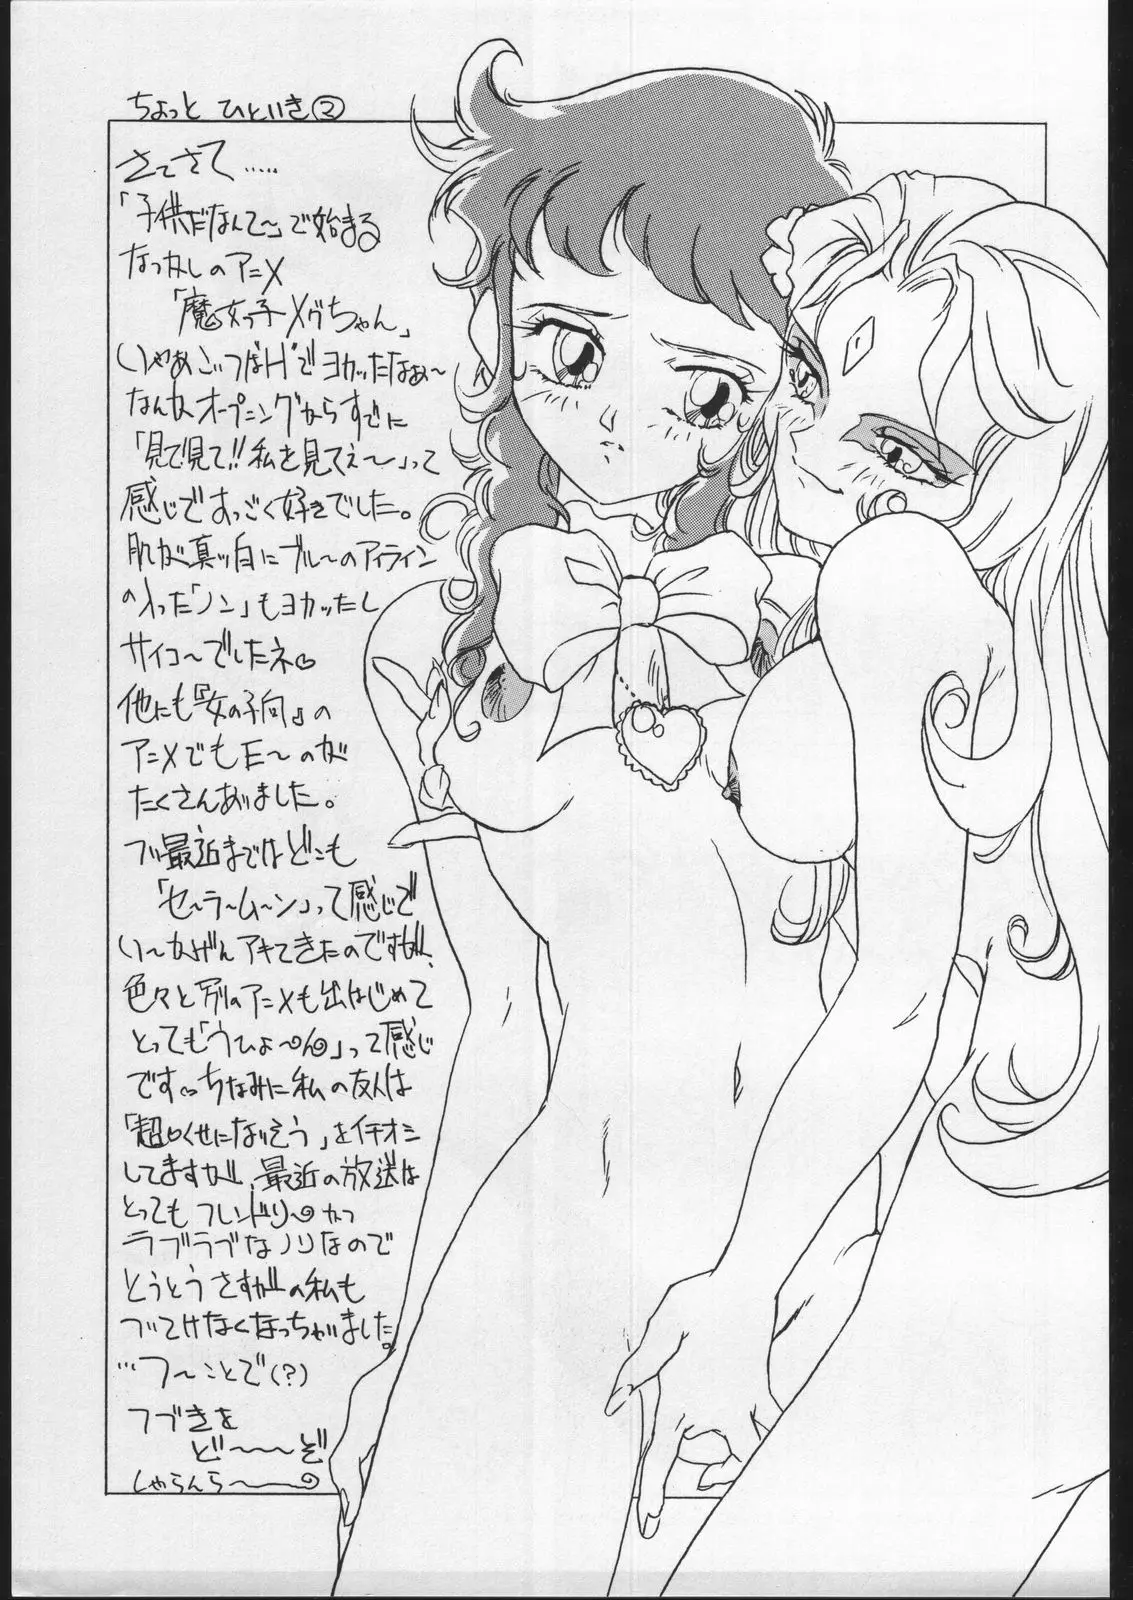 ちょっと ひといき②
さてさて……
「子供だなんて〜」で始まる
なつかしのアニメ
「魔女っ子メグちゃん」
いやあごっつばHでヨカッたなぁ〜
なんかオープニングからすでに
「見て見て!!私を見てぇ〜」って
感じですっごく好きでした。
肌が真ッ白にブルーのアイライン
の入った「ノン」もヨカッたし
サイコ〜でしたネ♡
他にも『女の子向』の
アニメでもE〜のが
たくさんありました。
つい最近まではどこも
「セ〜ラ〜ム〜ン」って感じで
い〜かげんアキてきたのですが、
色々と別のアニメも出はじめて
とっても「うひょ〜ん」って感じ
です♡ちなみに私の友人は
「超くせになりそう」をイチオシ
してますが、最近の放送は
とってもフレンドリ〜かつ
ラブラブなノリなので
とうとうさすがの私も
ついてけなくなっちゃいました。
…つ〜ことで(?)
つづきを
ど〜〜〜ぞ
しゃらんら〜